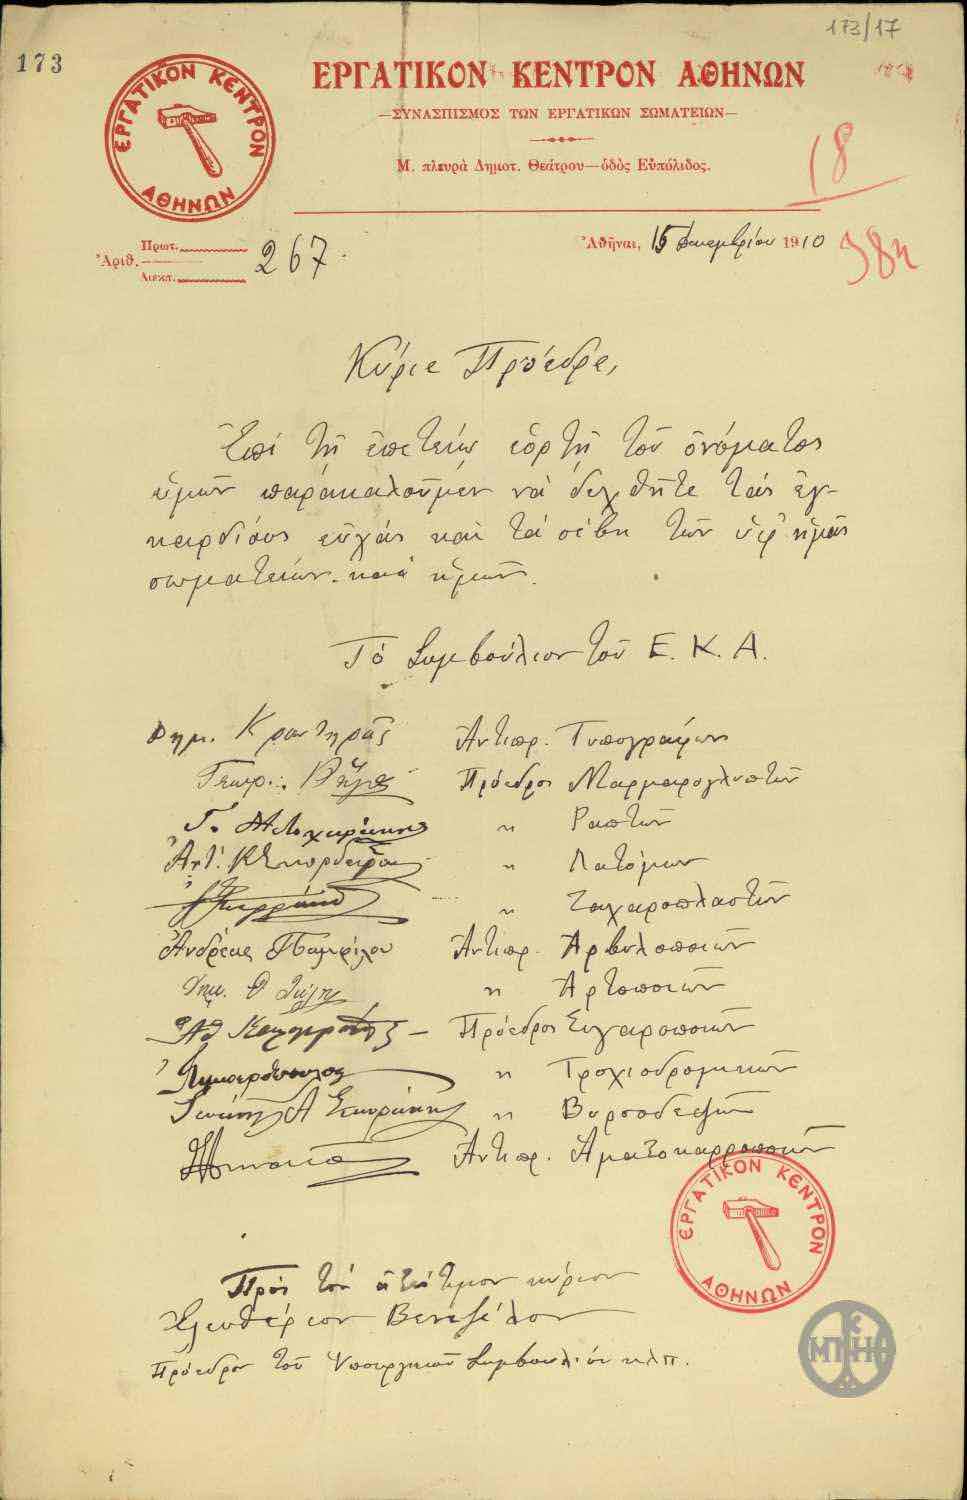 173/17
173
ΕΡΓΑΤΙΚΟΝ ΚΕΝΤΡΟΝ ΑΘΗΝΩΝ
ΕΡΓΑΤΙΚΟΝ ΚΕΝΤΡΟΝ ΑΘΗΝΩΝ
—ΣΥΝΑΣΠΙΣΜΟΣ ΤΩΝ ΕΡΓΑΤΙΚΩΝ ΣΩΜΑΤΕΙΩΝ—
Μ. πλευρὰ Δημοτ. Θεάτρου—ὁδὸς Εὐπόλιδος.
18
Ἀριθ. Πρωτ.
Διεκπ.
267.
Ἀθῆναι, 15 Δεκεμβρίου 1910
Κύριε Πρόεδρε,
Ἐπὶ τῇ ἐπετείῳ ἑορτῇ τοῦ ὀνόματος
ὑμῶν παρακαλοῦμεν νὰ δεχθῆτε τὰς ἐγ-
καρδίους εὐχάς καὶ τὰ σέβη τῶν ὑφ' ἡμᾶς
σωματείων καὶ ἡμῶν.
Τὸ Συμβούλιον τοῦ Ε. Κ. Α.
Δημ. Κραντηρᾶς Ἀντιπρ. Τυπογράφων
Γεωρ. Πρόεδρος Μαρμαρογλυπτῶν
Γ. " Ραπτῶν
Ἀντ. " Λατόμων
" Ζαχαροπλαστῶν
Ἀνδρέας Παμφίλου Ἀντιπρ. Ἀρβυλοποιῶν
" Ἀρτοποιῶν
Ἀθ Πρόεδρος Σιγαροποιῶν
" Τροχιοδρομικῶν
" Βυρσοδεψῶν
Ἀντιπρ. Ἁμαξοκαρροποιῶν
ΕΡΓΑΤΙΚΟΝ ΚΕΝΤΡΟΝ ΑΘΗΝΩΝ
Πρὸς τὸν ἀξιότιμον κύριον
Ἐλευθέριον Βενιζέλον
Πρόεδρον τοῦ Ὑπουργικοῦ Συμβουλίου κλπ.